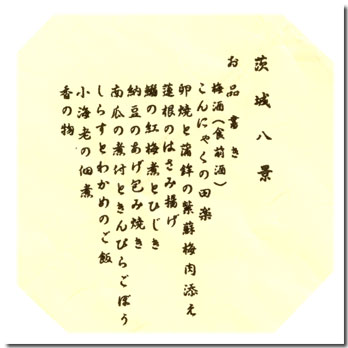 茨城八景
お品書き
梅酒(食前酒)
こんにゃくの田楽
卵焼と蒲鉾の紫蘇梅肉添え
蓮根のはさみ揚げ
鰯の紅梅煮とひじき
納豆のあげ包み焼き
南瓜の煮付ときんぴらごぼう
しらすとわかめのご飯
小海老の佃煮
香の物